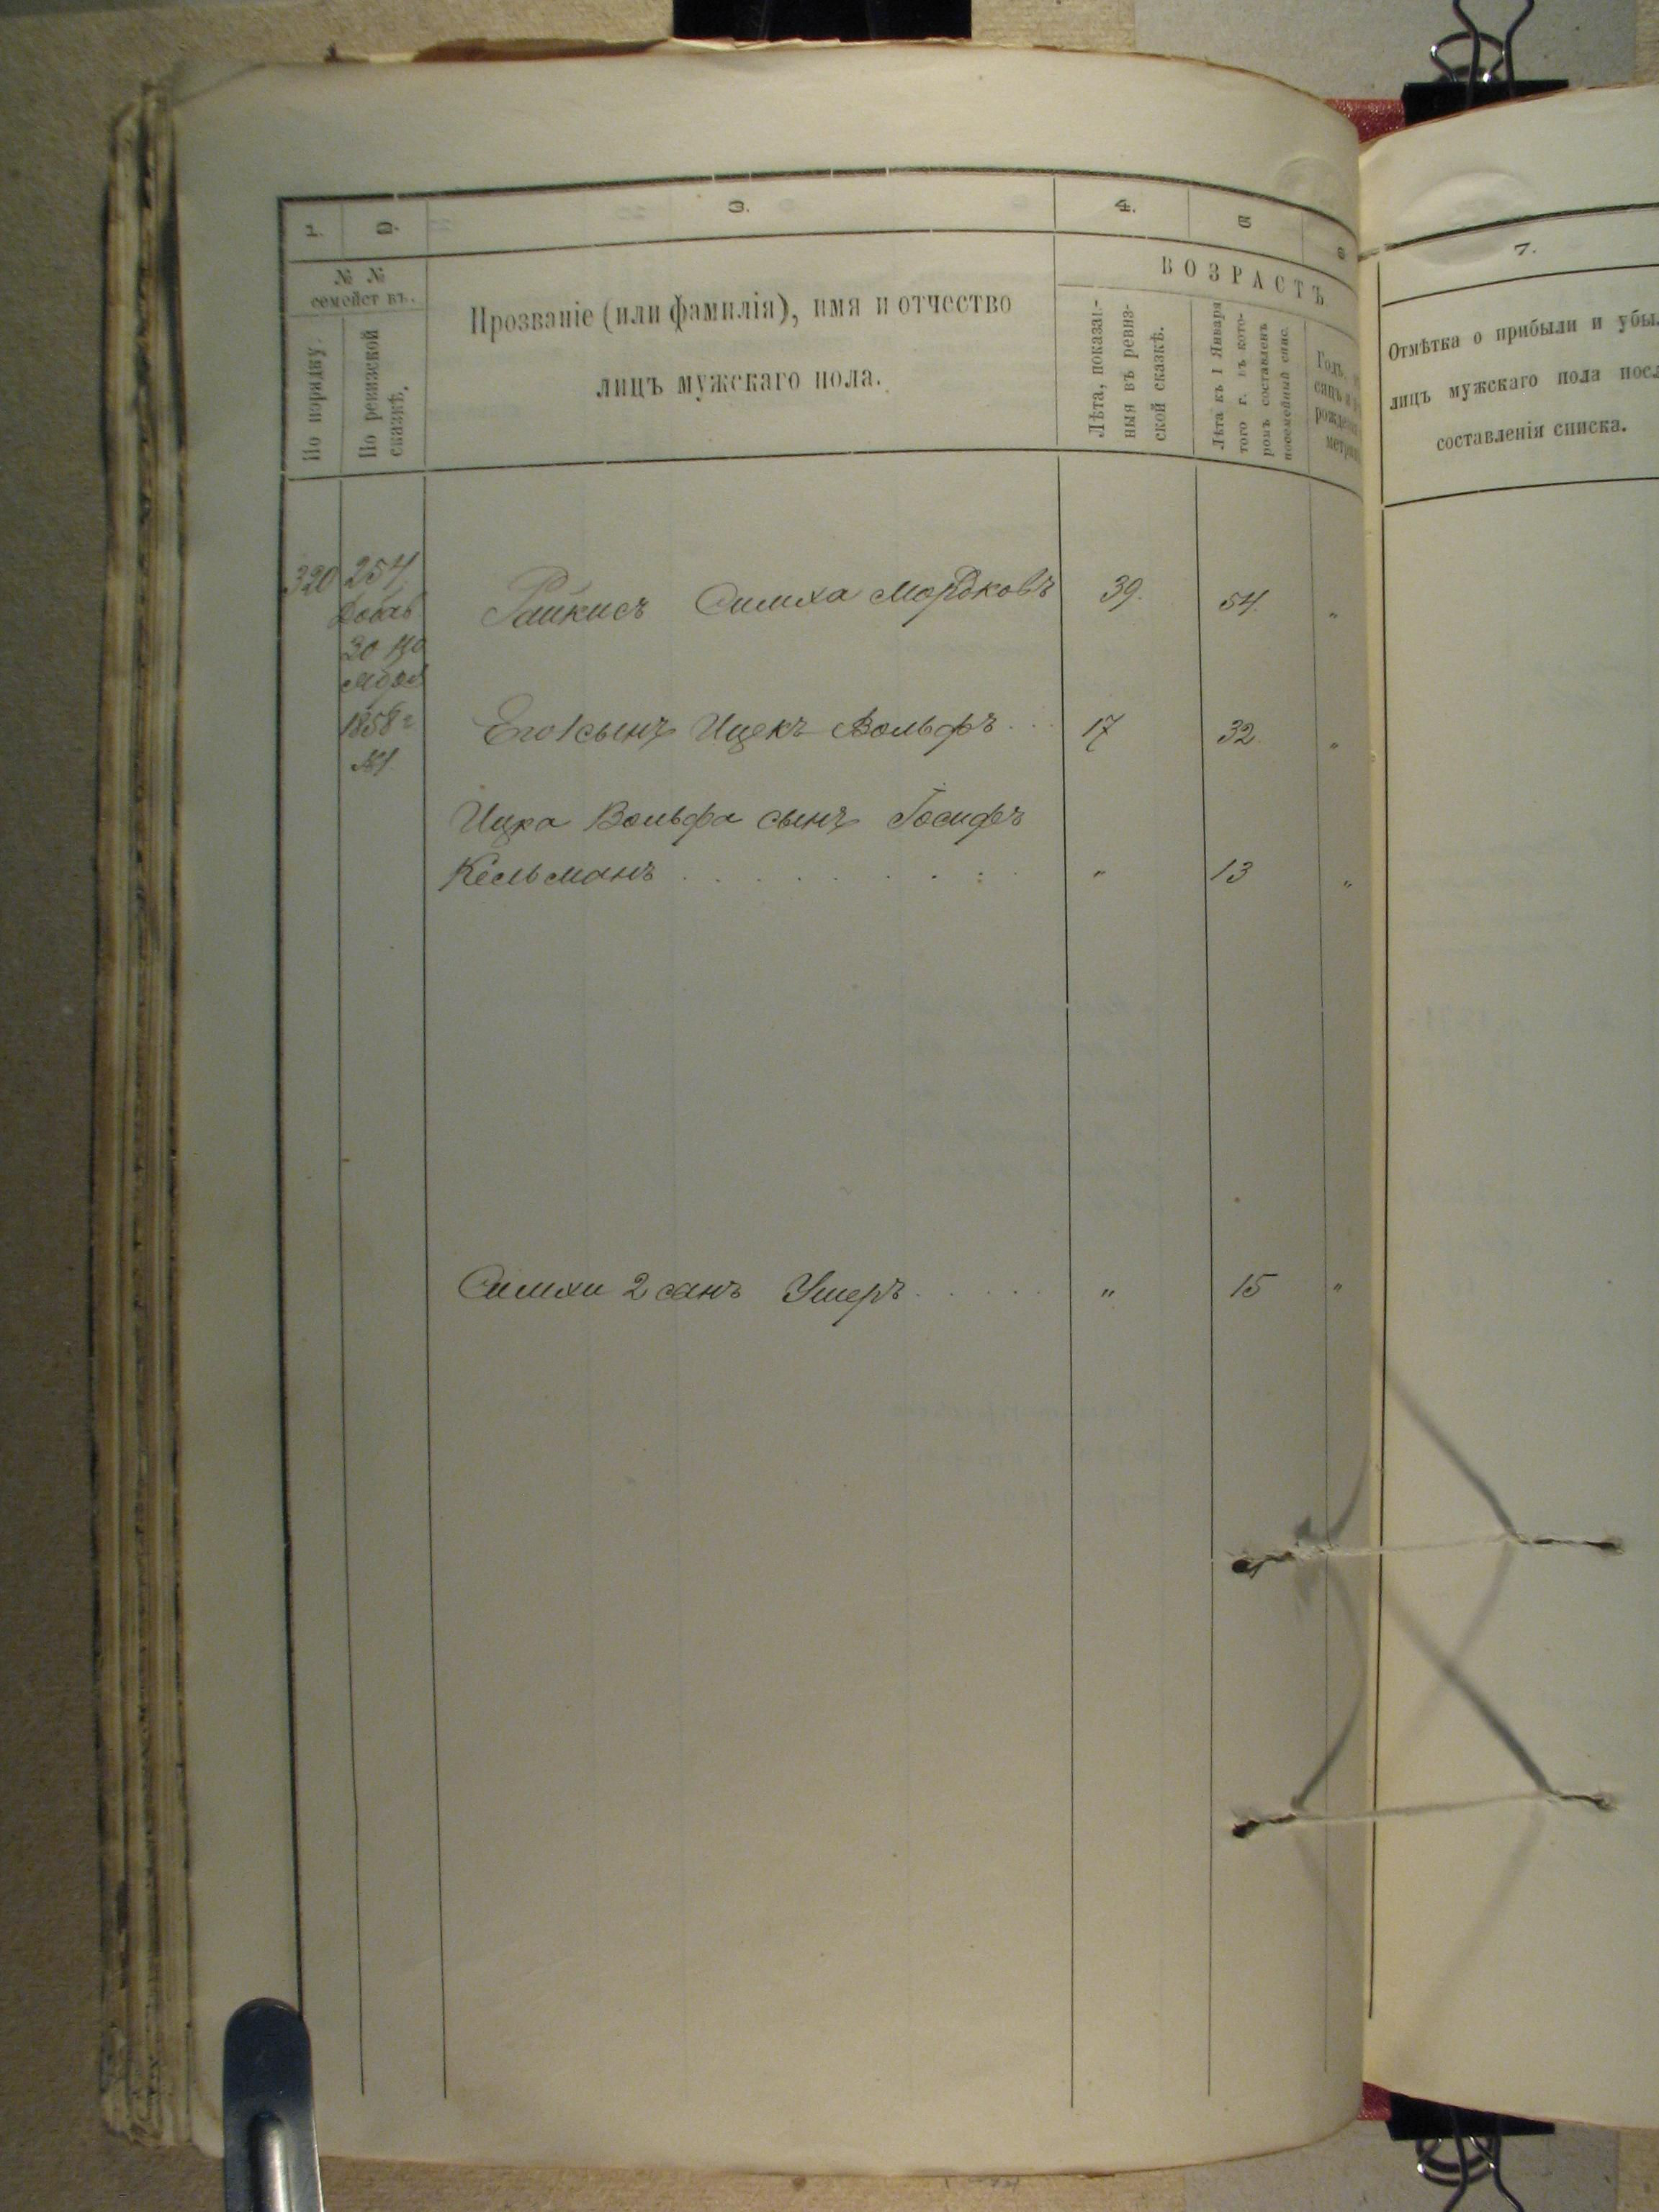 1. 2. 3. 4. 5 6
№ №
семейст въ.
По порядку.
По ревизской сказкѣ.
Прозваніе (или фамилія), имя и отчество
лицъ мужскаго пола.
ВОЗРАСТЪ
Лѣта, показан-
ныя въ ревиз-
ской сказкѣ.
Лѣта къ 1 Января
того г. въ кото-
ромъ составленъ
посемейный спис.
Годъ,
рожден
метрик
7.
Отмѣтка о прибыли и убы
лицъ мужскаго пола посл
составленія списка.
320 254 Райкисъ Симха Мордковъ 39. 54. "
Добав
30
1858 г Его 1 сынъ Ицекъ Вольфъ . . . 17 32. "
№1.
Ицка Вольфа сынъ Іосифъ
Кельманъ . . . . . . . . " 13 "
Симхи 2 сынъ Ушеръ . . . . . " 15 "